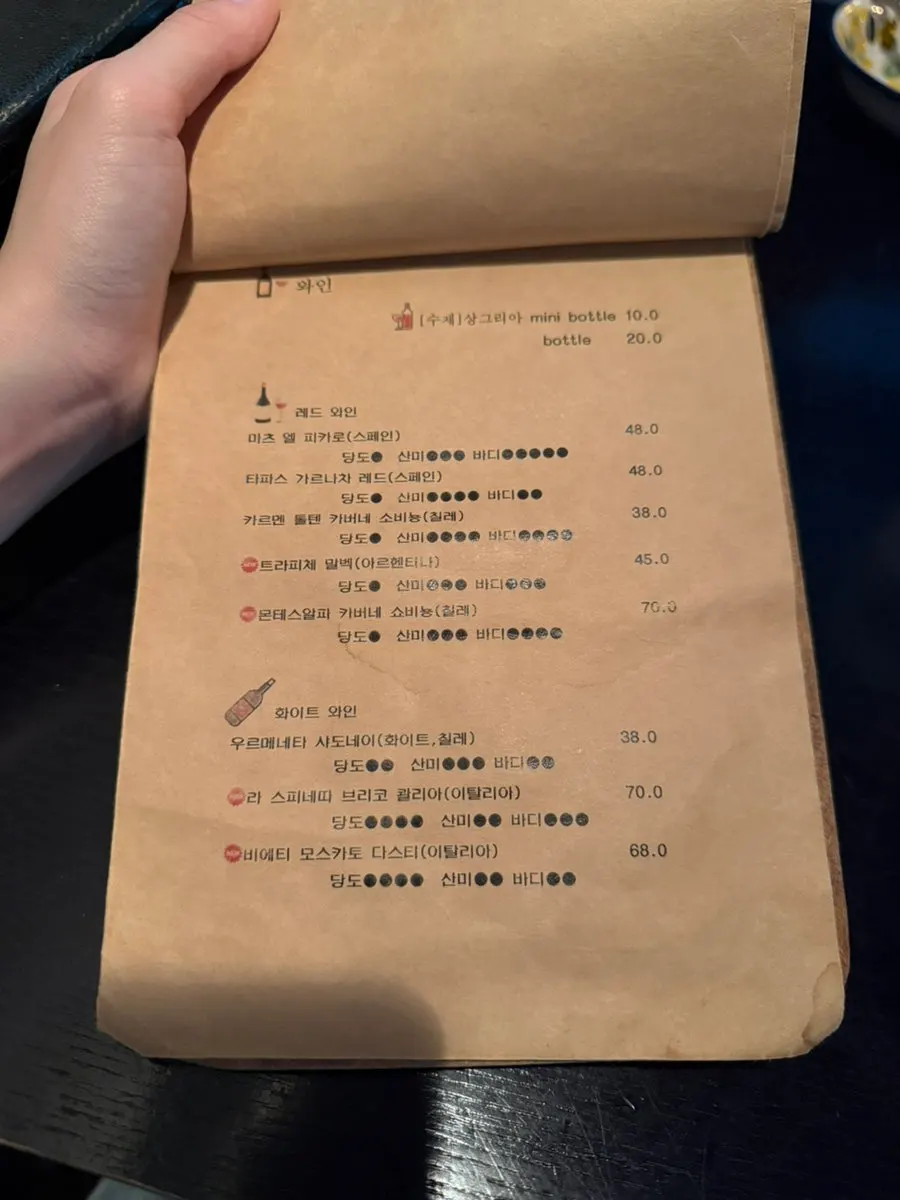 와인
[수제]상그리아 mini bottle 10.0
bottle 20.0
레드 와인
미츠 엘 피카로(스페인) 48.0
당도● 산미●●● 바디●●●●●
타파스 가르나차 레드(스페인) 48.0
당도● 산미●●●● 바디●●
카르멘 톨텐 카버네 소비뇽(칠레) 38.0
당도● 산미●●●● 바디●●●●
NEW 트라피체 말벡(아르헨티나) 45.0
당도● 산미●●● 바디●●●
NEW 몬테스알파 카버네 쇼비뇽(칠레) 70.0
당도● 산미●●● 바디●●●●
화이트 와인
우르메네타 샤도네이(화이트,칠레) 38.0
당도●● 산미●●● 바디●●
NEW 라 스피네따 브리코 콸리아(이탈리아) 70.0
당도●●●● 산미●● 바디●●●
NEW 비에티 모스카토 다스티(이탈리아) 68.0
당도●●●● 산미●● 바디●●